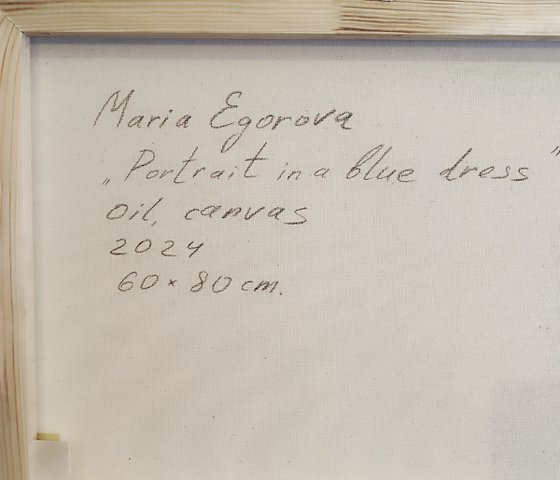 Maria Egorova
„Portrait in a blue dress"
Oil, canvas
2024
60 × 80 cm.